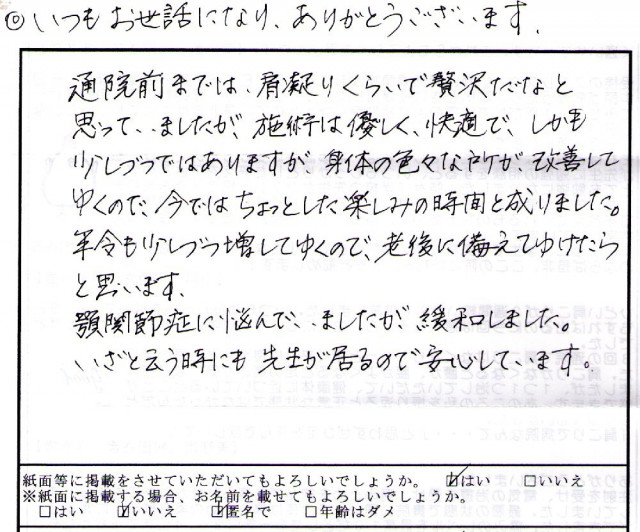 ◎いつもお世話になり、ありがとうございます。
通院前までは、肩凝りくらいで贅沢だなと
思っていましたが、施術は優しく、快適で、しかも
少しづつではありますが身体の色々なケ所が、改善して
ゆくので、今ではちょっとした楽しみの時間と成りました。
年令も少しづつ増してゆくので、老後に備えてゆけたら
と思います。
顎関節症に悩んでいましたが、緩和しました。
いざと云う時にも先生が居るので安心しています。
紙面等に掲載をさせていただいてもよろしいでしょうか。 ☑はい □いいえ
※紙面に掲載する場合、お名前を載せてもよろしいでしょうか。
□はい ☑いいえ ☑匿名で □年齢はダメ